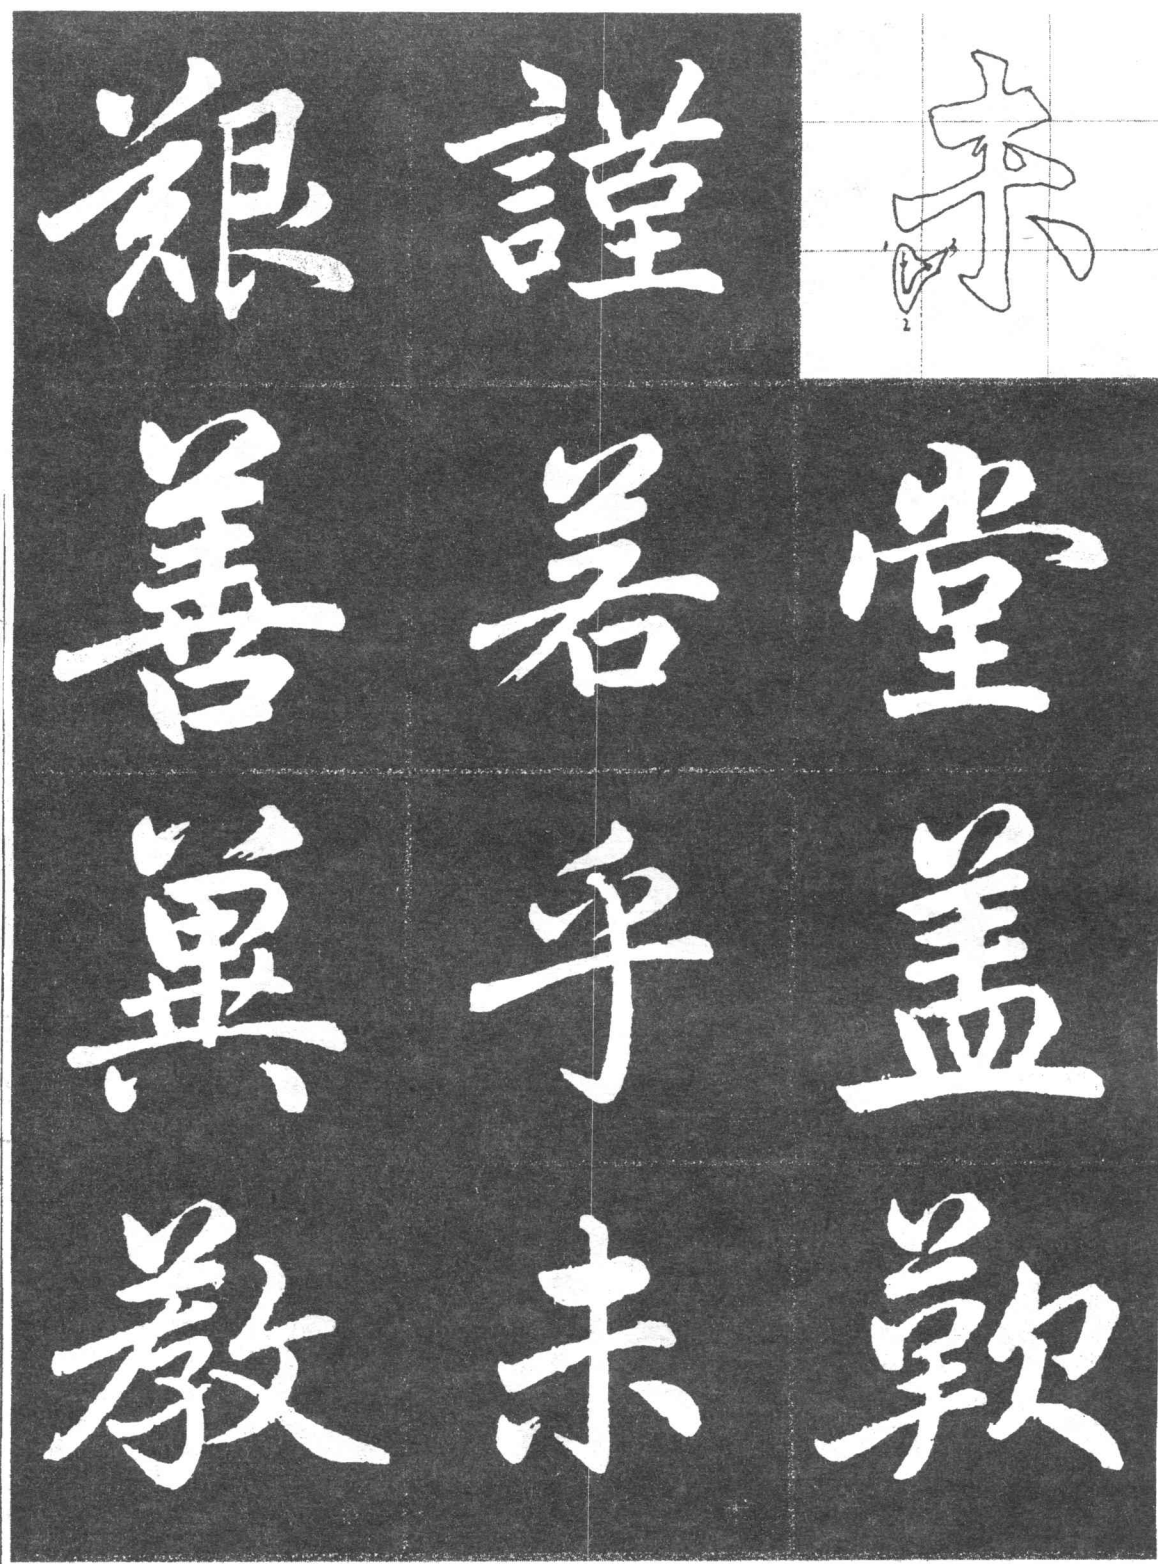 未堂盖歎
謹若乎未
艱善冀教